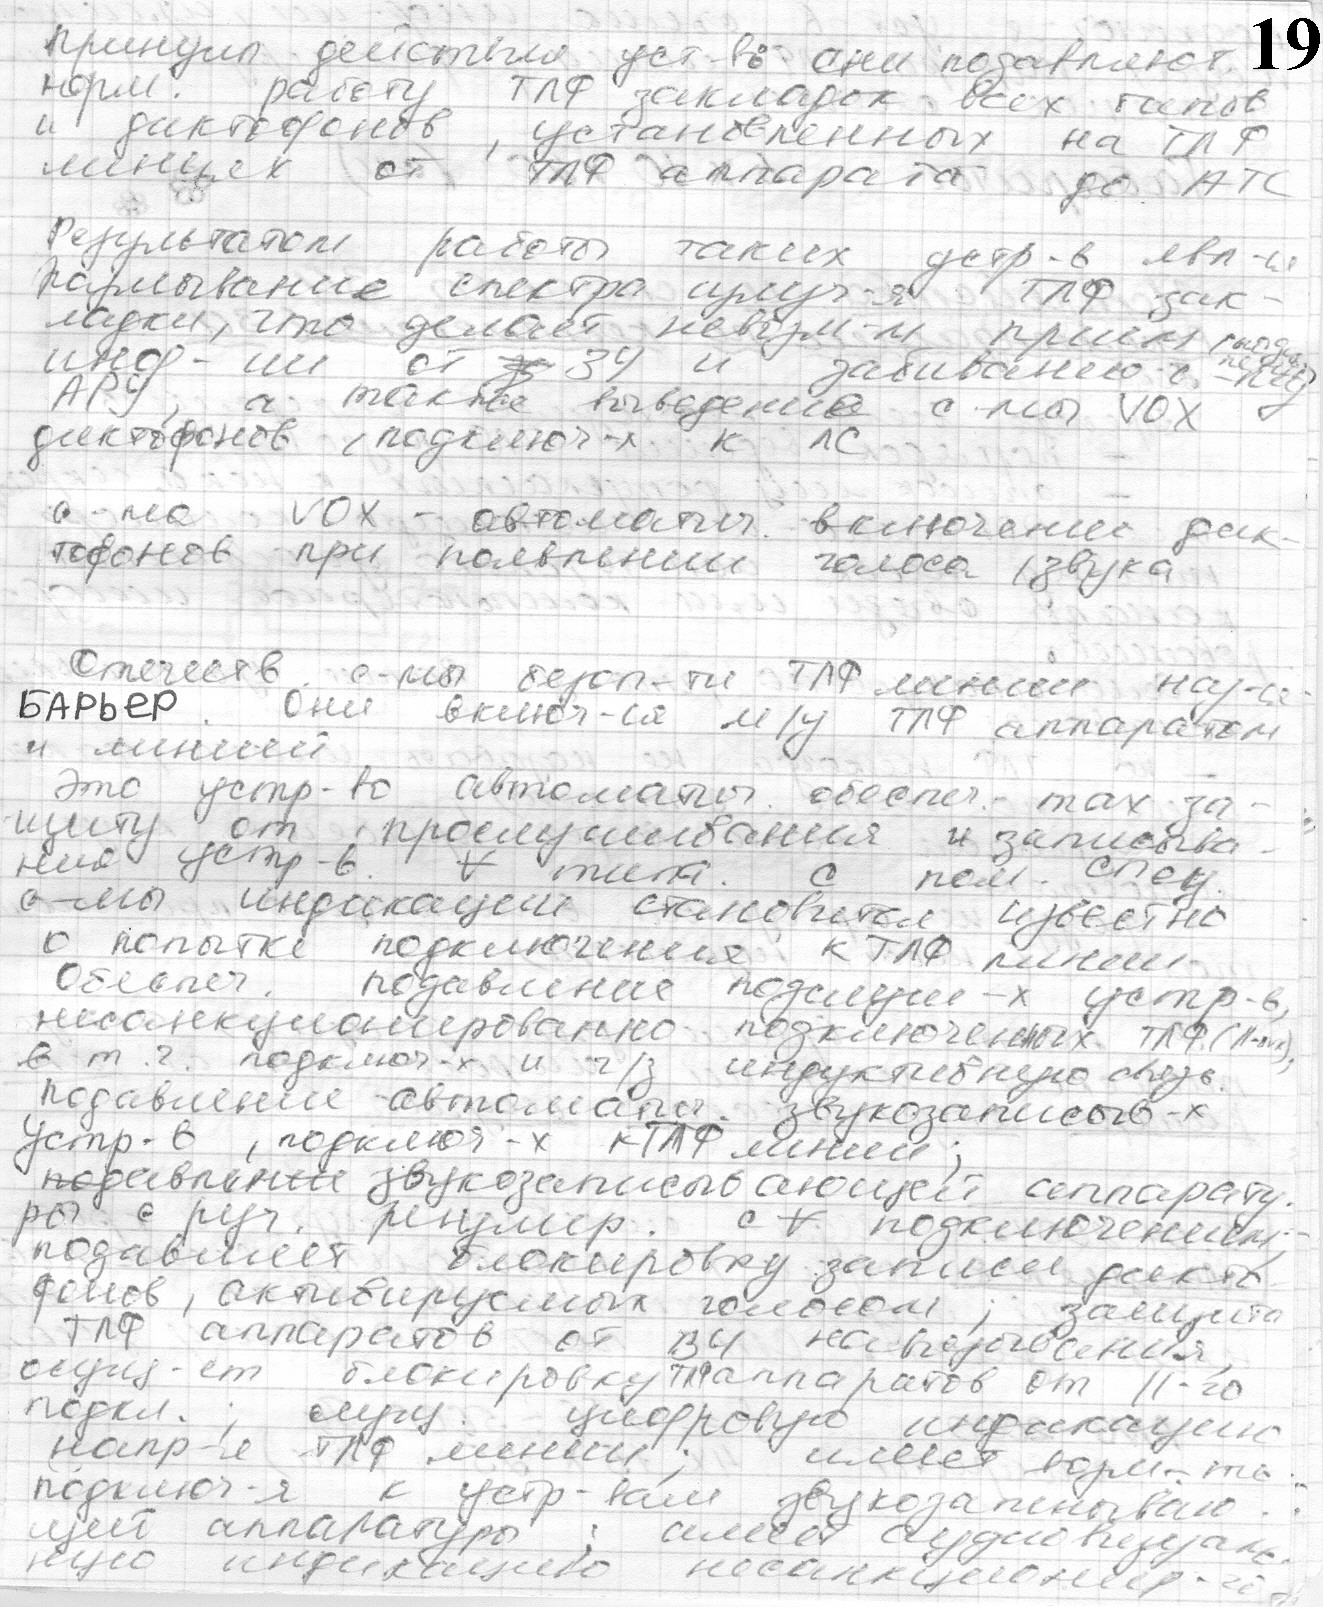 19
принцип действия уст-в: они подавляют
норм. работу ТЛФ закладок всех типов
и диктофонов, установленных на ТЛФ
линиях от ТЛФ аппарата до АТС
Результатом работы таких устр-в явл-ся
размывание спектра излуч-я ТЛФ зак-
ладки, что делает невозм-м прием
инф-ии от ЗУ и
АРУ, а также выведение с-мы VOX
диктофонов, подключ-х к ЛС
с-ма VOX - автоматич. включении дик-
тофонов при появлении голоса, звука
Отечеств. с-мы безоп-ти ТЛФ линии наз-ся
БАРЬЕР. Они включ-ся м/у ТЛФ аппаратом
и линией
Это устр-во автоматич. обеспеч. max за-
щиту от прослушивания и записыва-
ния устр-в. ∀ типа. С пом. спец.
с-мы индикации становится известно
о попытке подключения к ТЛФ линии
Обеспеч. подавление подслуш-х устр-в,
несанкционированно подключенных ТЛФ
в т.ч. подключ-х и ч/з индуктивную связь.
Подавление автоматич. звукозаписыв-х
устр-в, подключ-х к ТЛФ линии;
подавлении звукозаписывающей аппарату-
ры с руч. регулир. с ∀ подключением;
подавляет блокировку записи дикто
фонов, активируемых голосом; защита
ТЛФ аппаратов от ВЧ навязывания,
осущ-ет блокировку ТЛФ аппаратов от ||-го
подкл.; осущ. цифровую индикацию
напр-я ТЛФ линии; имеет возм-ть
подключ-я к устр-вам звукозаписываю-
щей аппаратуры; имеет аудиовизуаль-
ную индикацию несанкционир-го